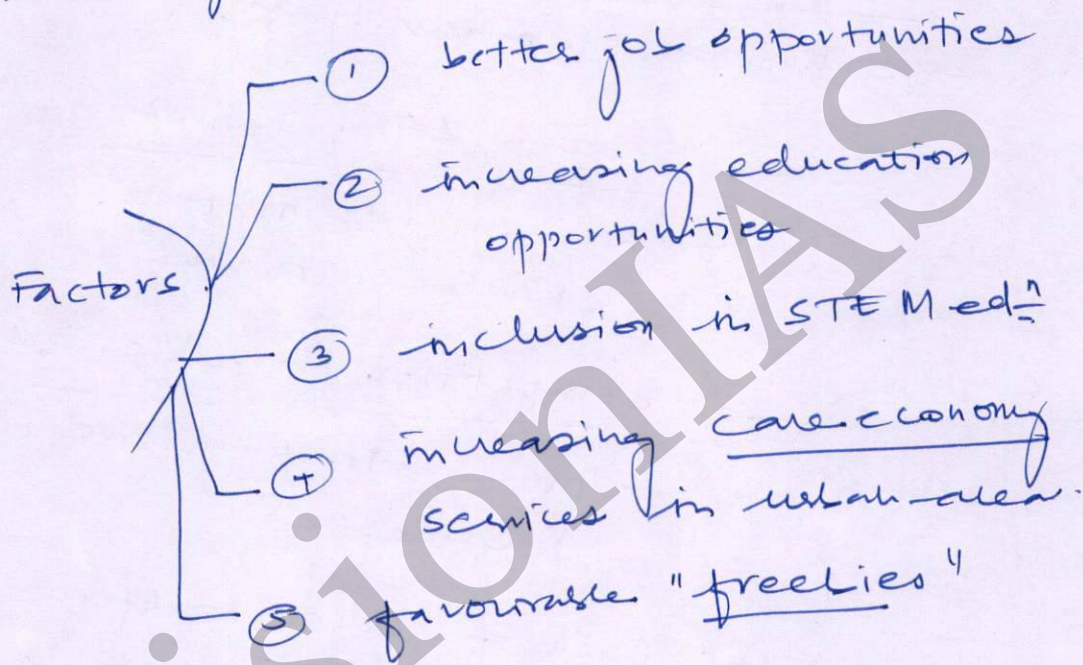 ① better job opportunities
② increasing education
opportunities
Factors
③ inclusion in STEM edⁿ
④ increasing care economy
services in urban area.
⑤ favourable "freebies"
sionIAS